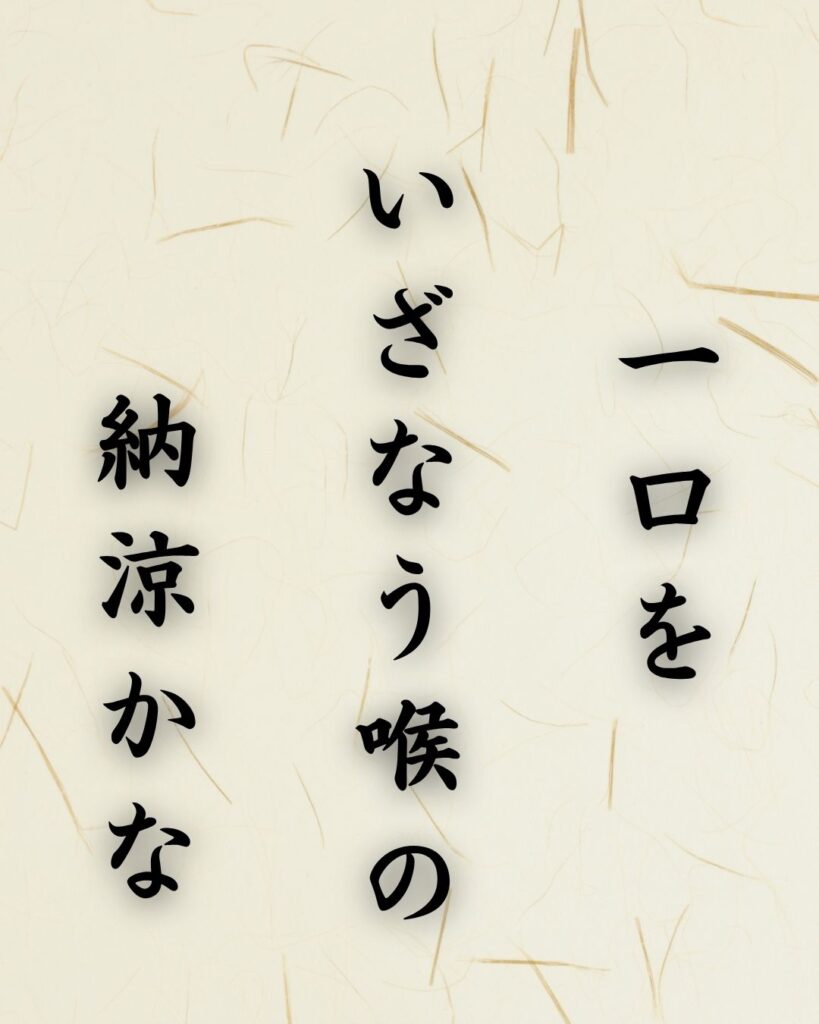 一口を
いざなう喉の
納涼かな